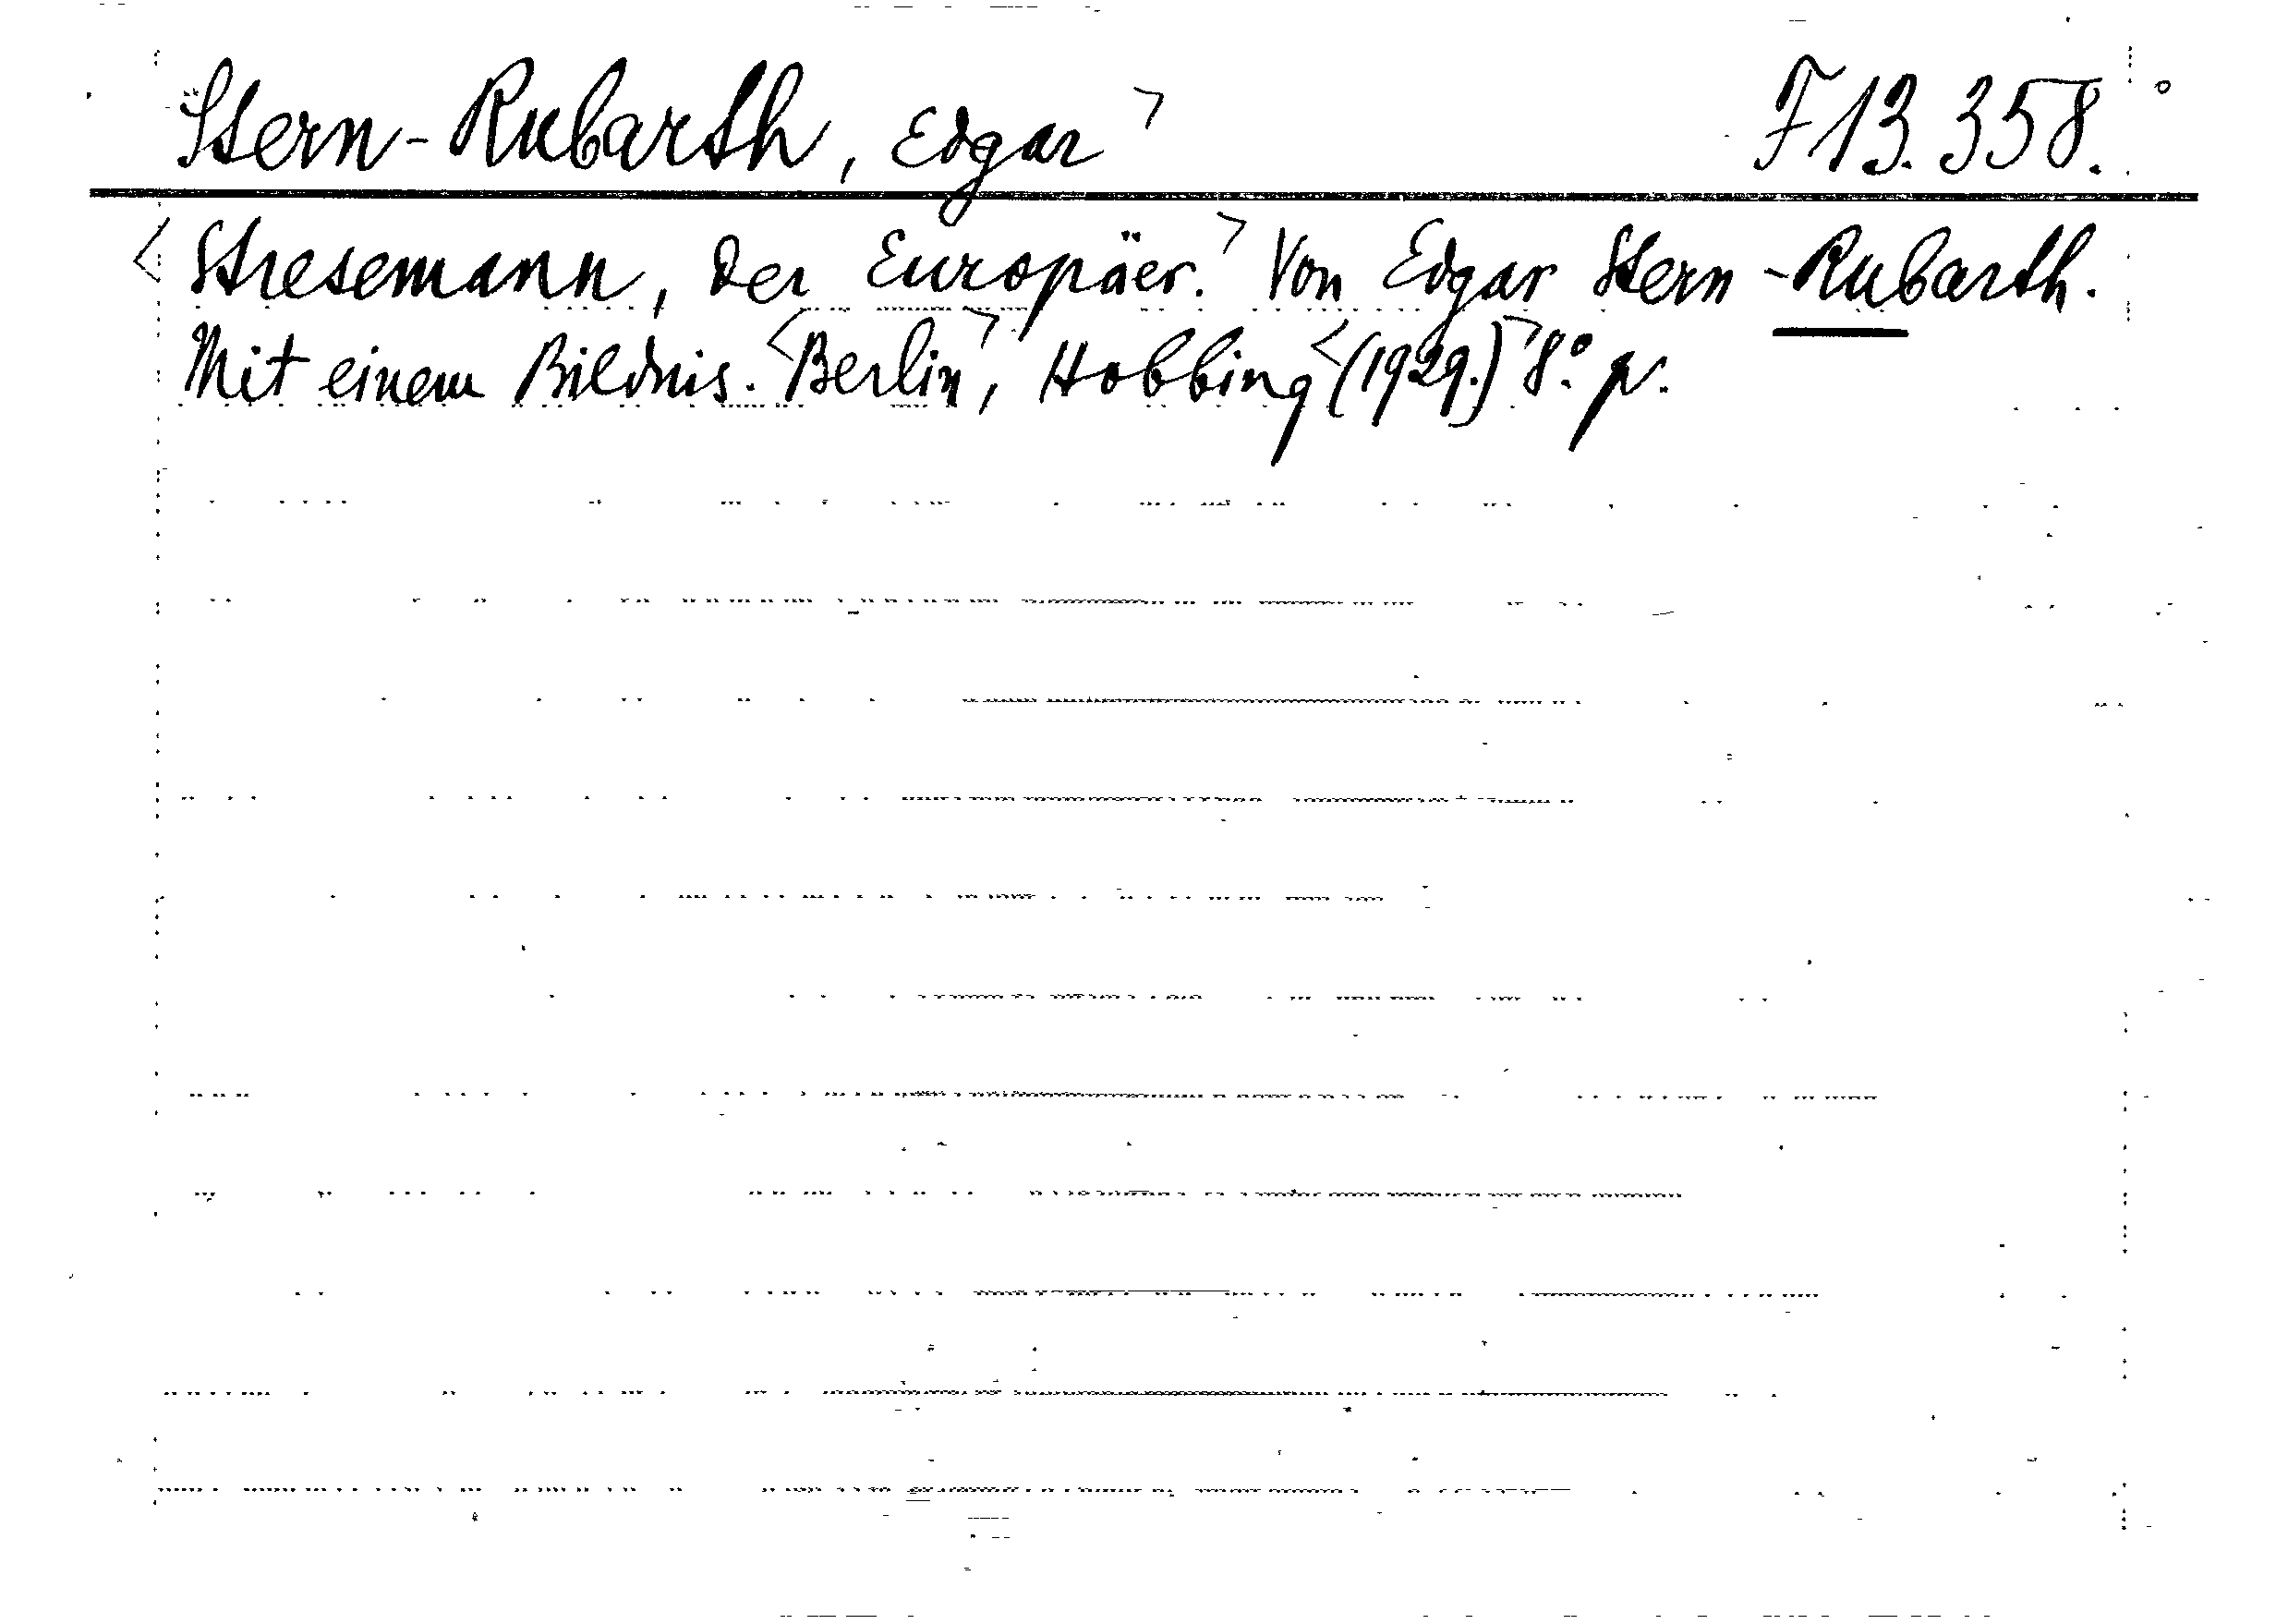 Stern-Rubarth, Edgar F 13. 358.
Stresemann, der Europäer. Von Edgar Stern-Rubarth.
Mit einem Bildnis. Berlin, Hobbing (1929.) 8.° p.